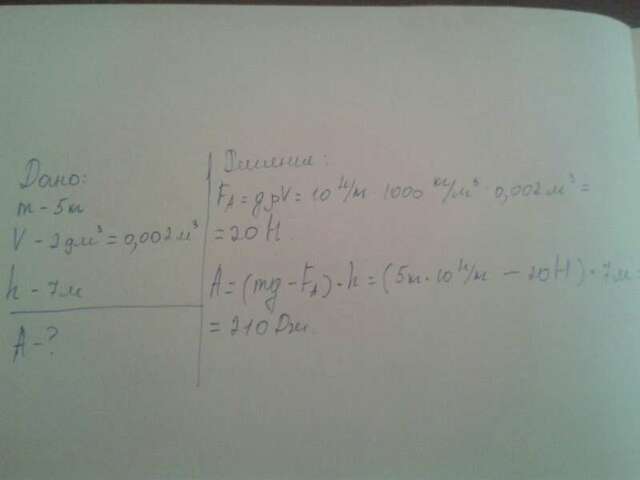 Дано:
m - 5кг
V - 2дм³ = 0,002м³
h - 7м
A - ?
Решение:
Fₐ = gρV = 10 Н/кг · 1000 кг/м³ · 0,002м³ =
= 20 Н
A = (mg - Fₐ) · h = (5кг · 10 Н/кг - 20Н) · 7м =
= 210 Дж.